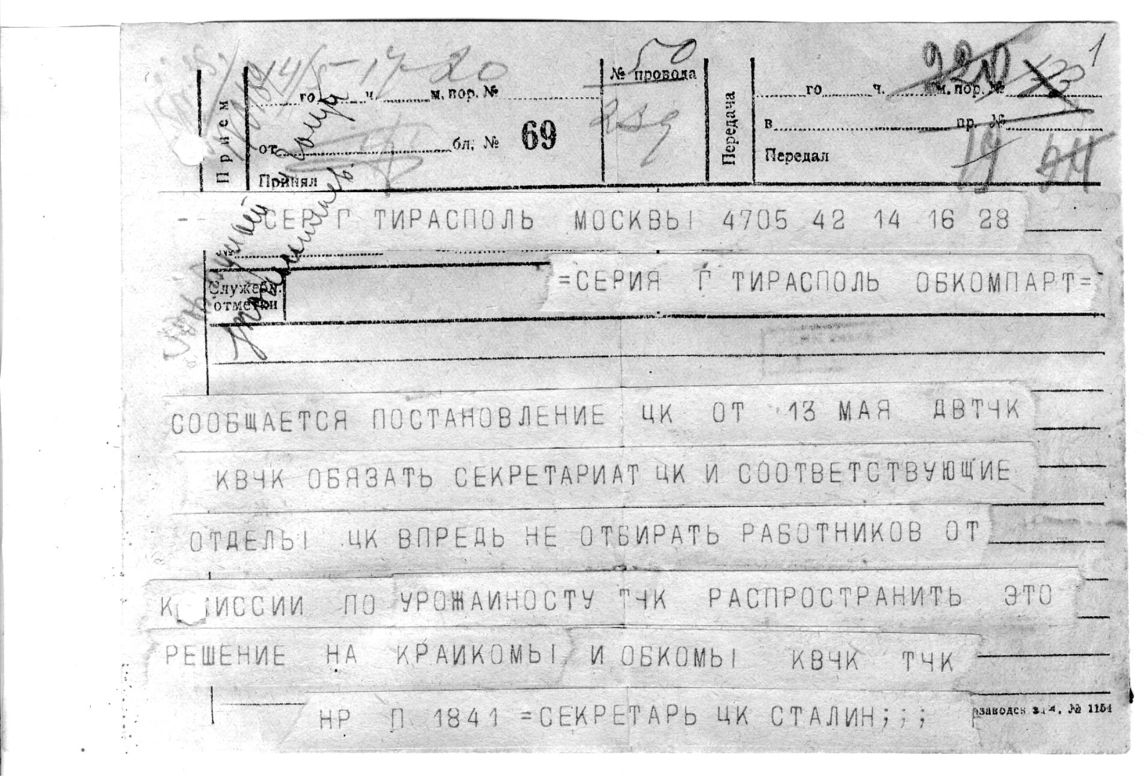 50
220 123 1
14/5-17-20
№ провода
Прием
го ч. м. пор. №
от бл. № 69
Принял
259
Передача
го ч. м. пор. №
в пр. №
Передал
19 54
-- СЕР Г ТИРАСПОЛЬ МОСКВЫ 4705 42 14 16 28
№
Служебн. отметки
=СЕРИЯ Г ТИРАСПОЛЬ ОБКОМПАРТ=
СООБЩАЕТСЯ ПОСТАНОВЛЕНИЕ ЦК ОТ 13 МАЯ ДВТЧК
КВЧК ОБЯЗАТЬ СЕКРЕТАРИАТ ЦК И СООТВЕТСТВУЮЩИЕ
ОТДЕЛЫ ЦК ВПРЕДЬ НЕ ОТБИРАТЬ РАБОТНИКОВ ОТ
К ИССИИ ПО УРОЖАИНОСТУ ТЧК РАСПРОСТРАНИТЬ ЭТО
РЕШЕНИЕ НА КРАИКОМЫ И ОБКОМЫ КВЧК ТЧК
НР П 1841 =СЕКРЕТАРЬ ЦК СТАЛИН;;;
№ 1154